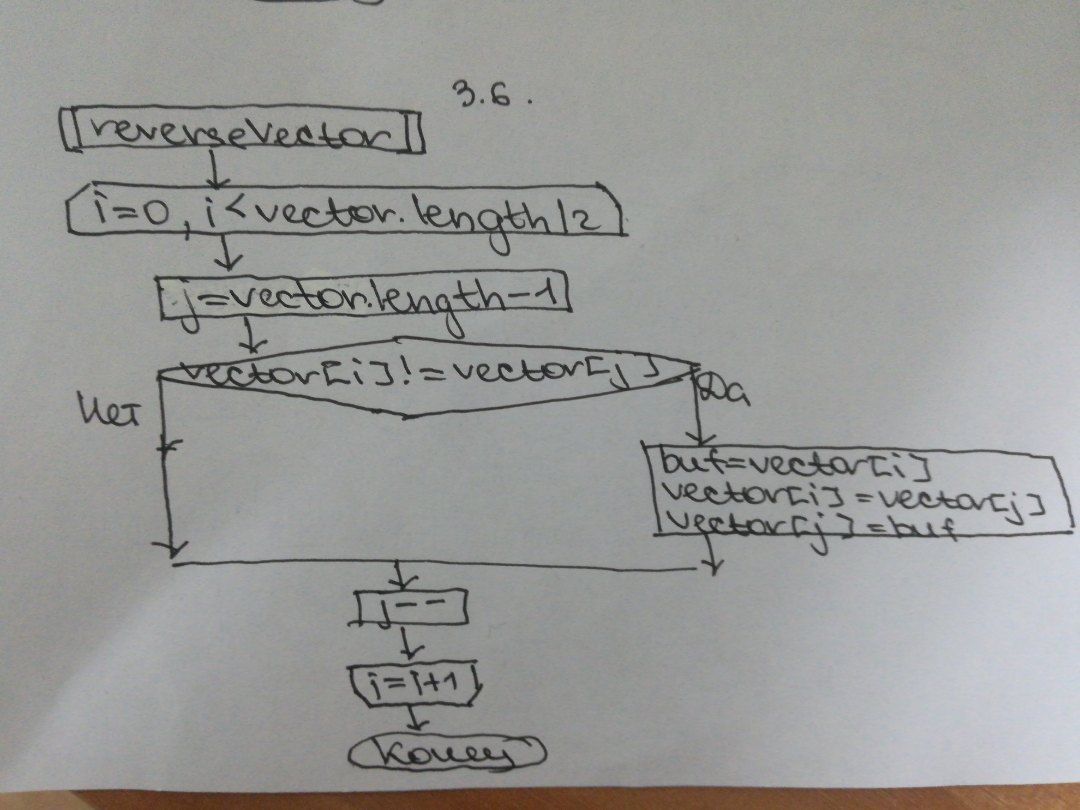 3.6.
reverseVector
i=0, i<vector.length/2
j=vector.length-1
vector[i]!=vector[j]
Нет
Да
buf=vector[i]
vector[i]=vector[j]
vector[j]=buf
j--
i=i+1
Конец